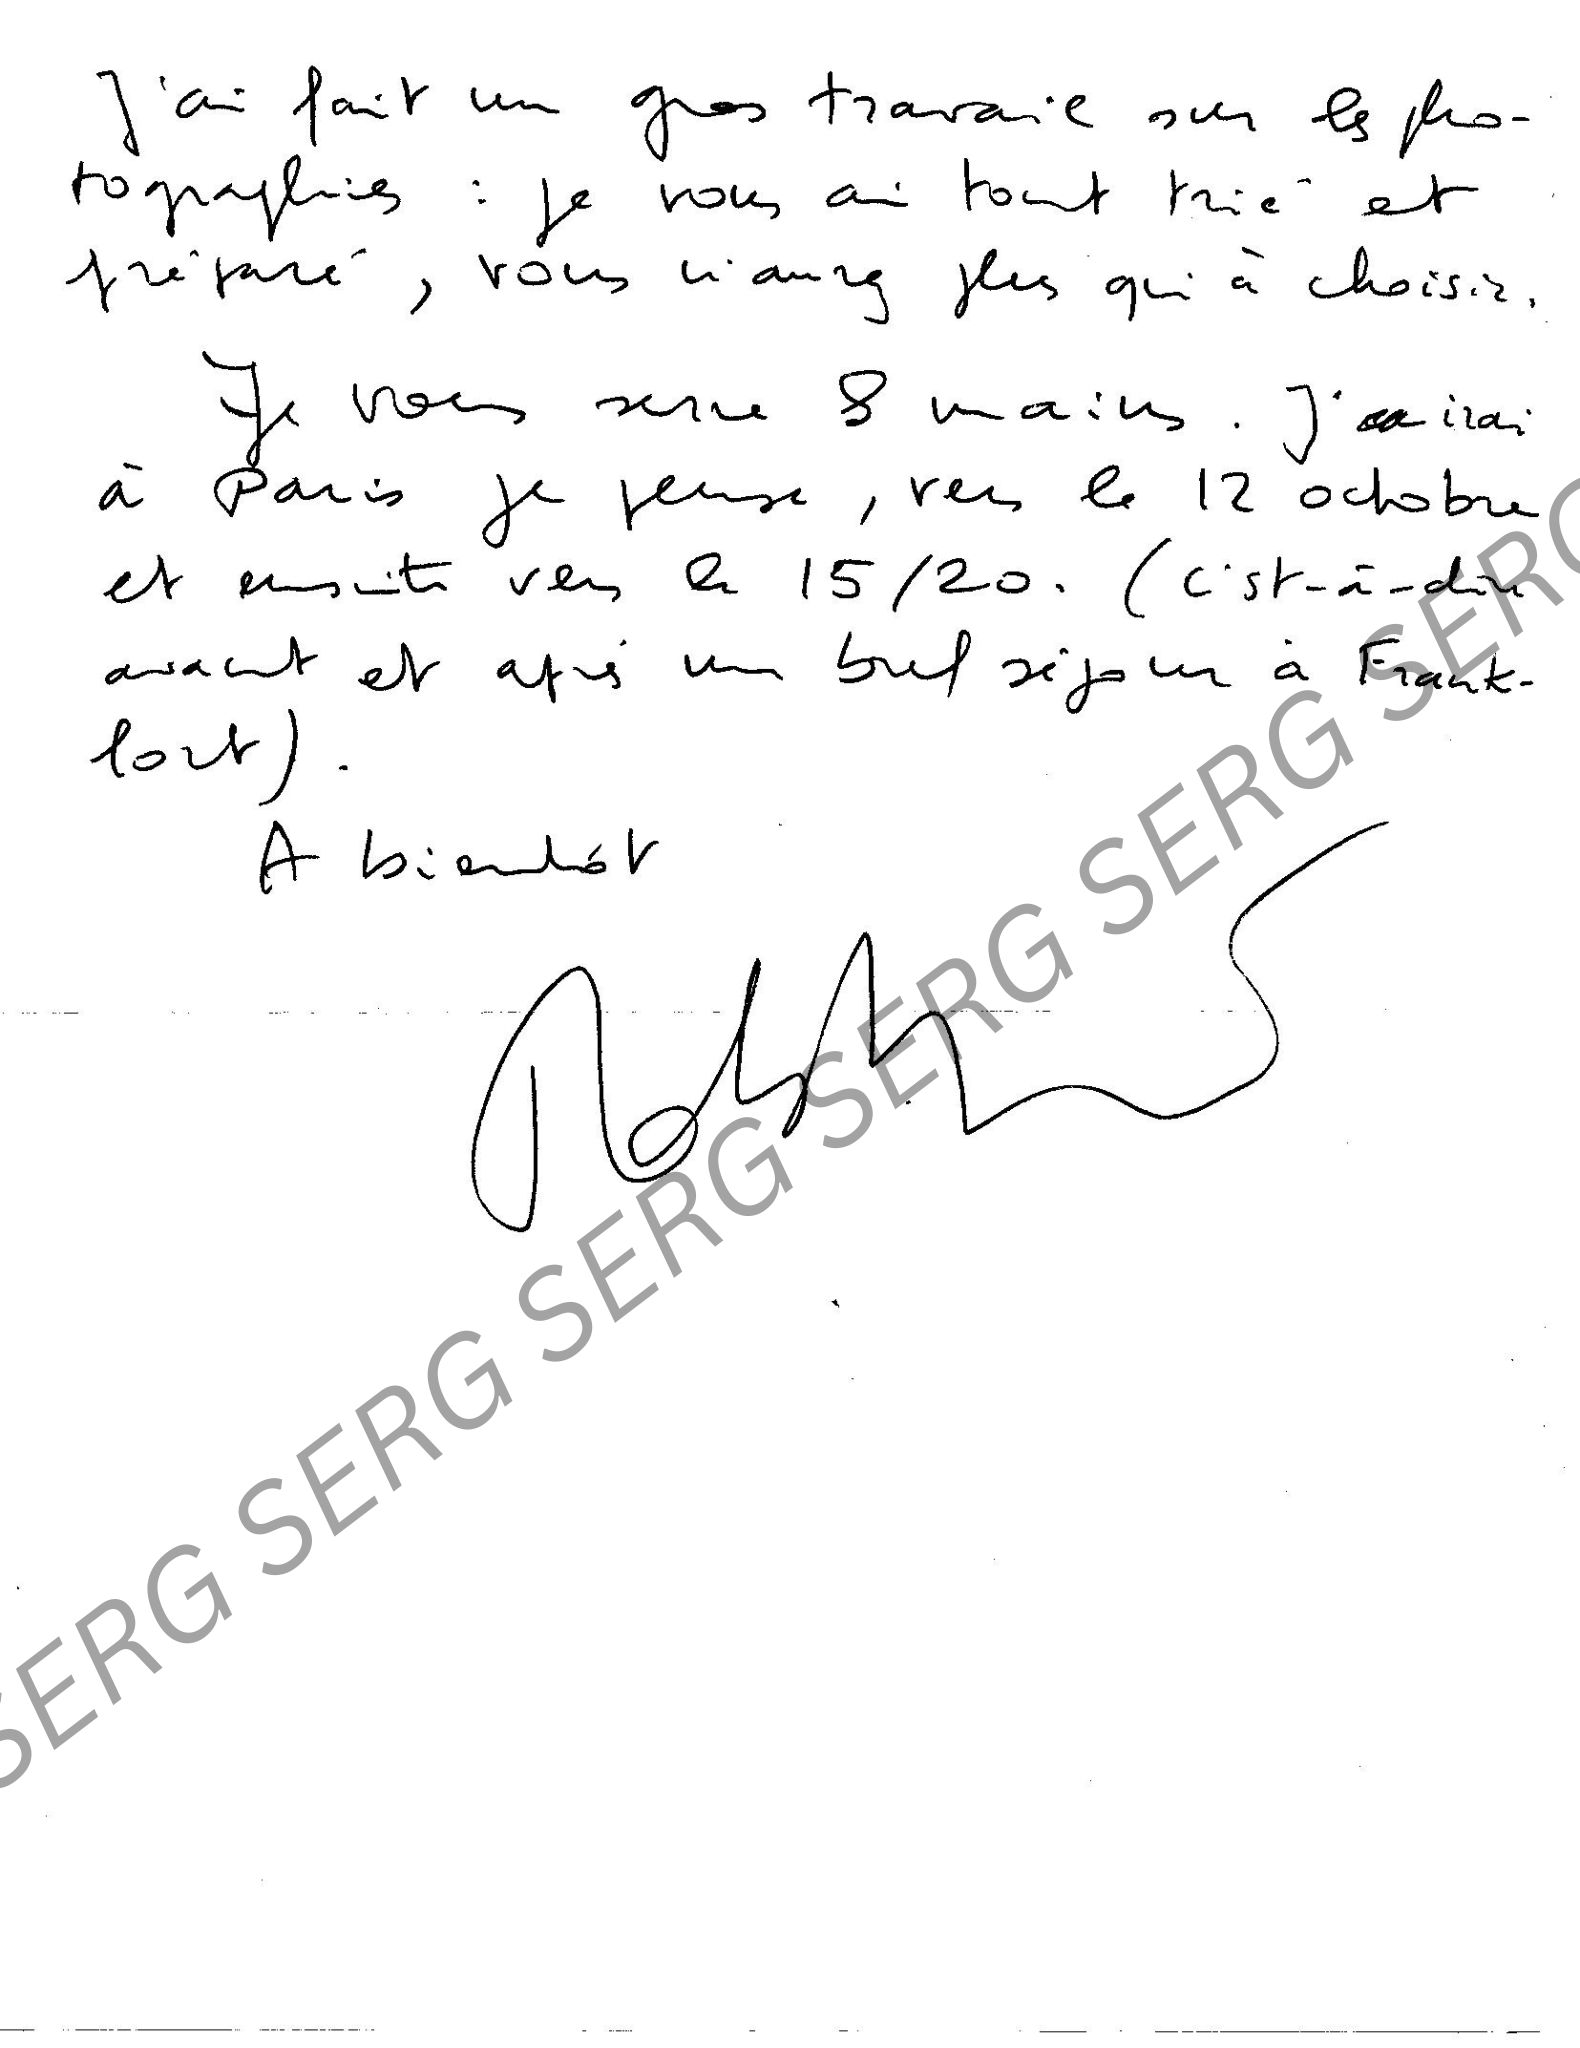 J'ai fait un gros travail sur les pho-
tographies : je vous ai tout trié et
préparé, vous n'aurez plus qu'à choisir.
Je vous serre 8 mains. J'irai
à Paris je pense, vers le 12 octobre
et ensuite vers le 15/20. (c'est-à-dire
avant et après un bref séjour à Frank-
fort).
A bientôt
SERG SERG SERG SERG SERG SERG